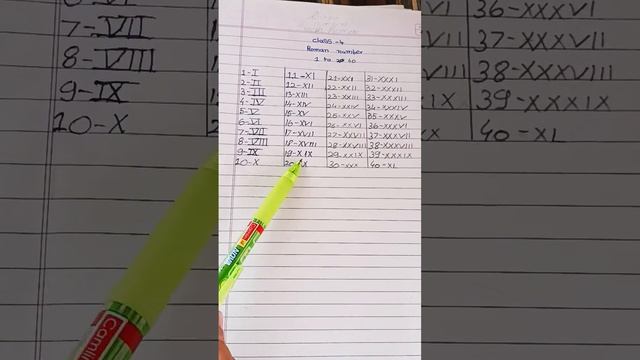 Class-4
Roman number
1 to 40
1-I 11-XI 21-XXI 31-XXXI
2-II 12-XII 22-XXII 32-XXXII
3-III 13-XIII 23-XXIII 33-XXXIII
4-IV 14-XIV 24-XXIV 34-XXXIV
5-V 15-XV 25-XXV 35-XXXV
6-VI 16-XVI 26-XXVI 36-XXXVI
7-VII 17-XVII 27-XXVII 37-XXXVII
8-VIII 18-XVIII 28-XXVIII 38-XXXVIII
9-IX 19-XIX 29-XXIX 39-XXXIX
10-X 20-XX 30-XXX 40-XL
7-VII
8-VIII
9-IX
10-X
36-XXXVI
37-XXXVII
38-XXXVIII
39-XXXIX
40-XL